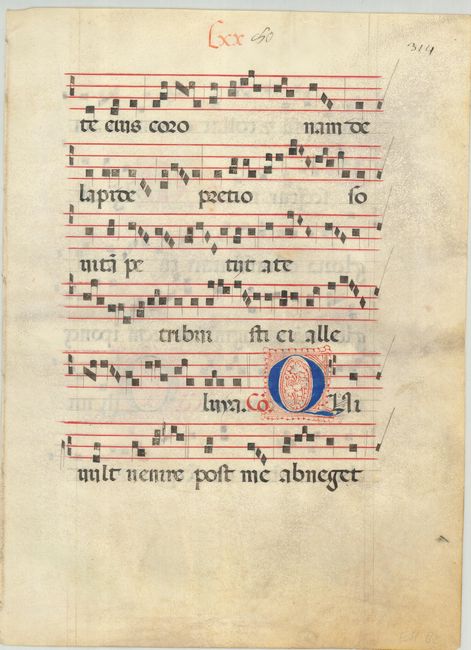 Lxx 314
te eius coro nam de
lapide pretio so
uitã pe tiit a te
tribui sti ei alle
luya. Co. Qui
uult uenire post me abneget